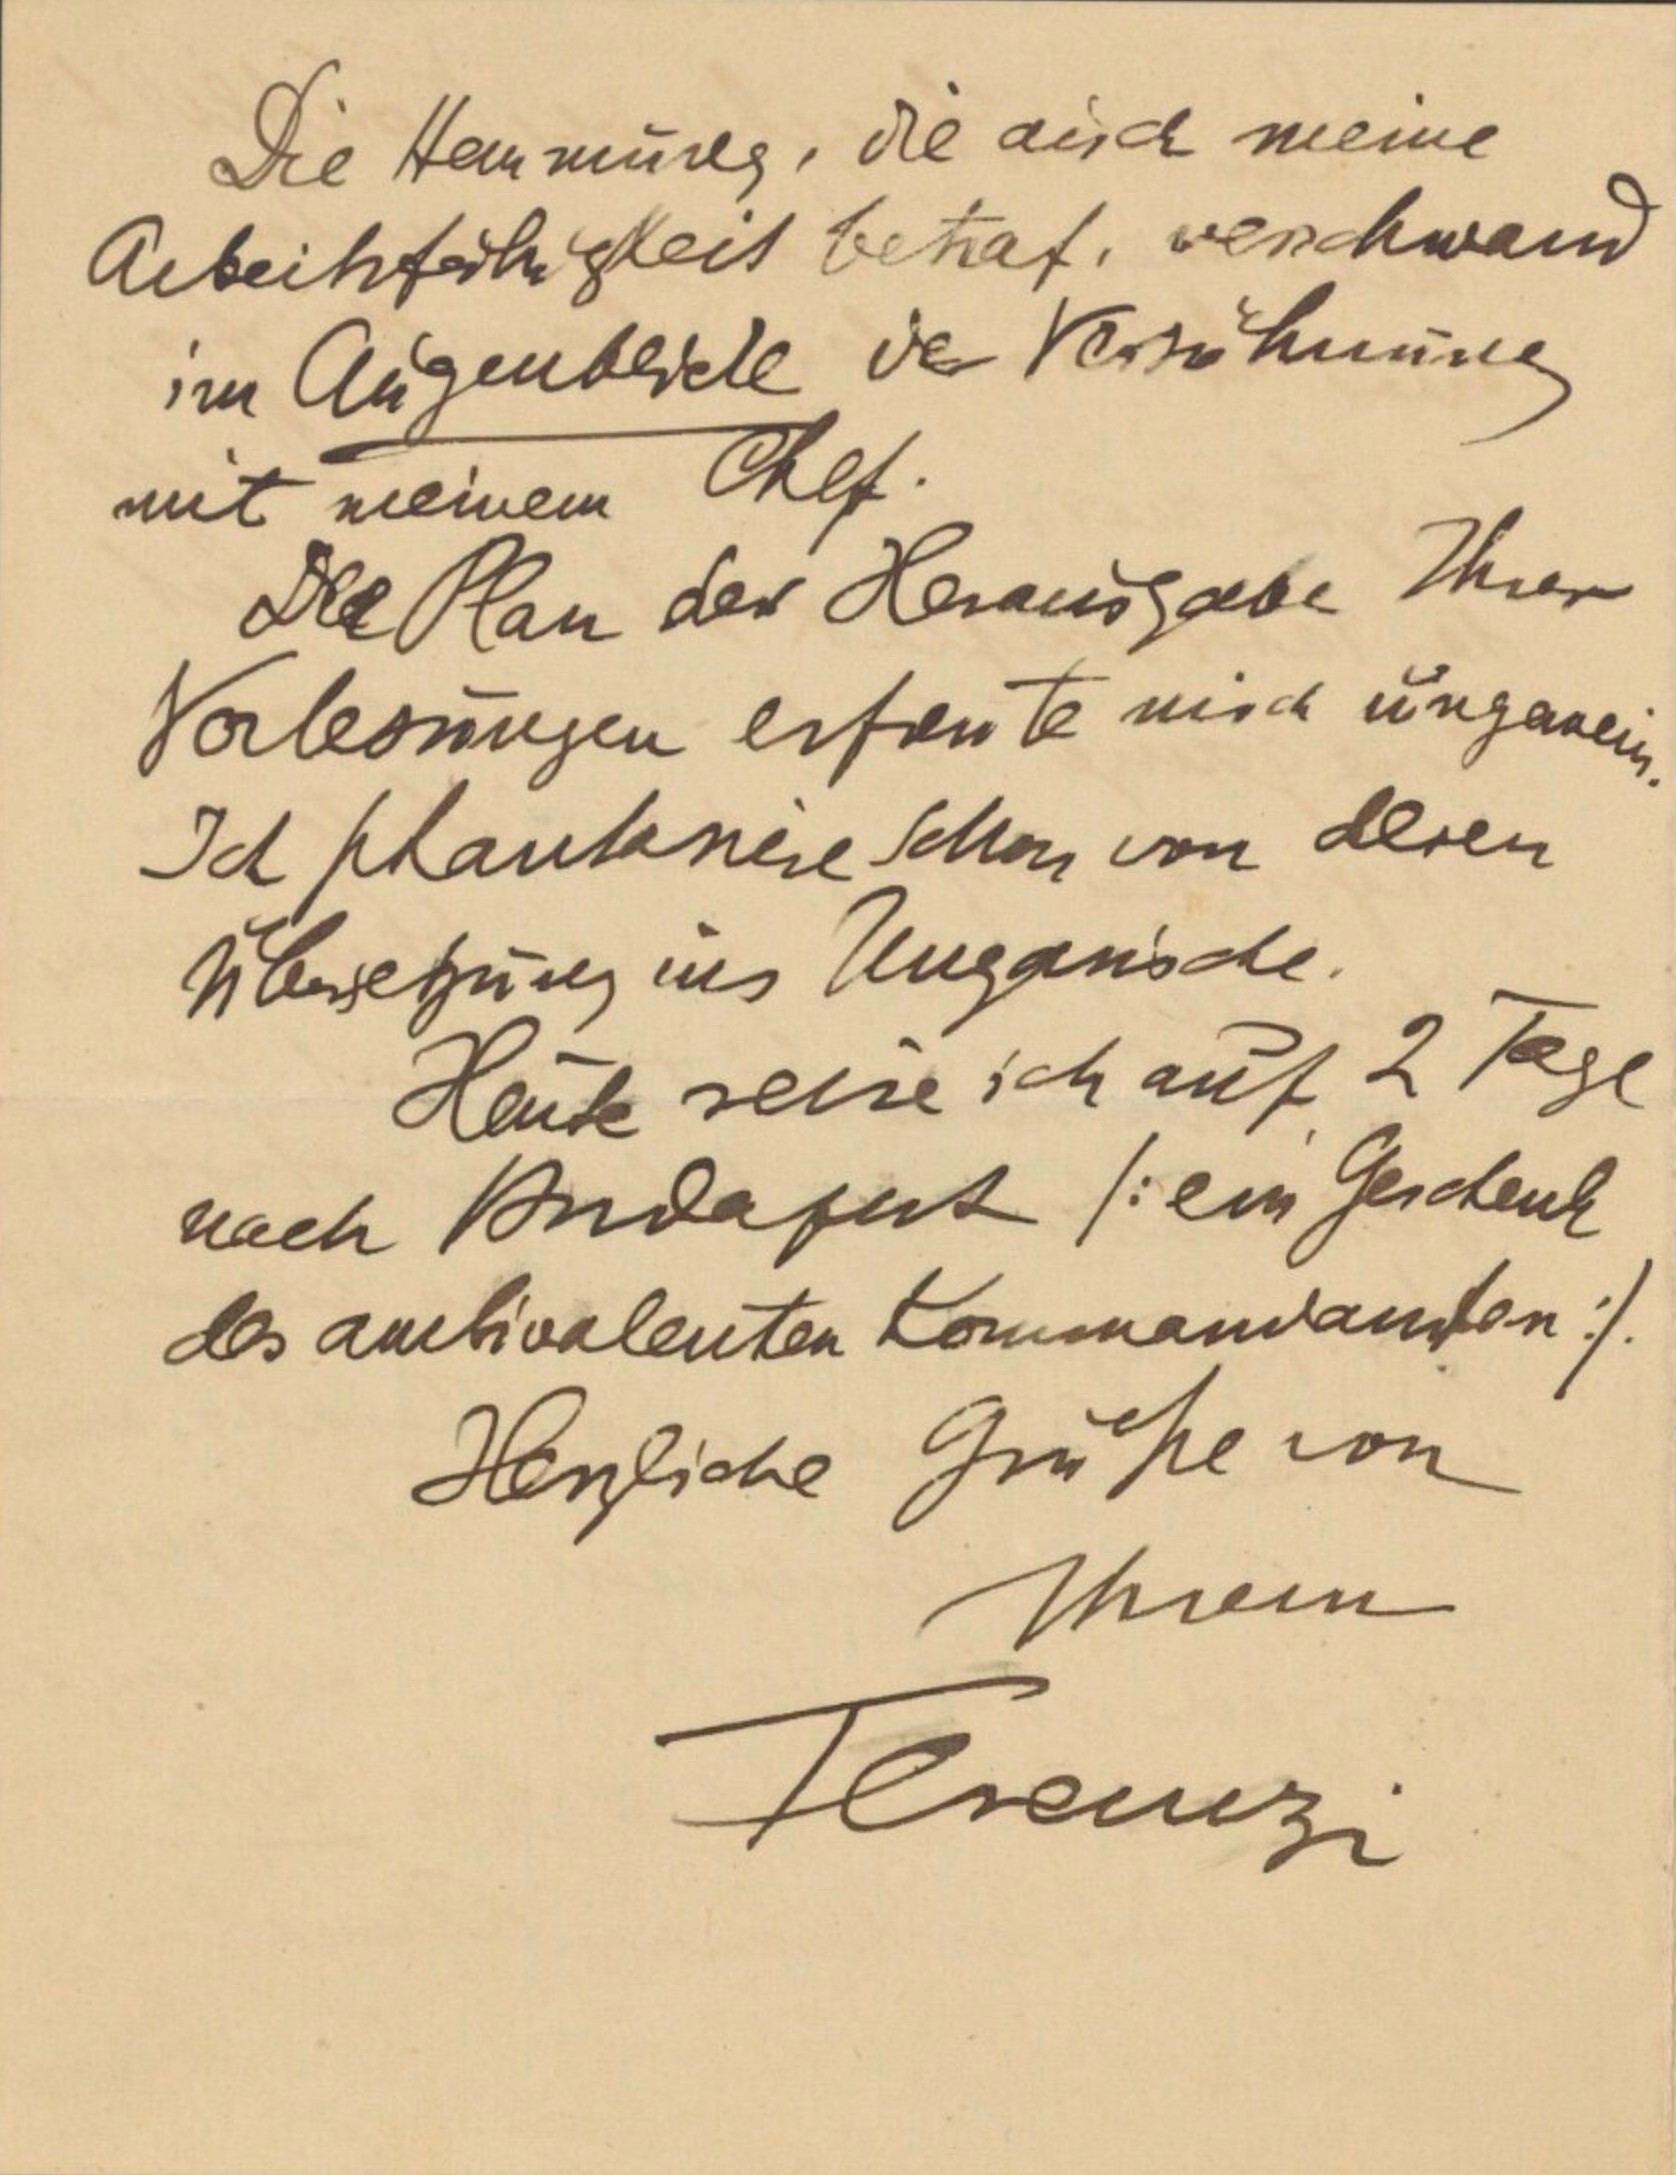 Die Hemmung, die auch meine
Arbeitsfähigkeit betraf, verschwand
im Augenblicke der Versöhnung
mit meinem Chef.
Der Plan der Herausgabe Ihrer
Vorlesungen erfreute mich ungemein.
Ich phantasiere schon von deren
Übersetzung ins Ungarische.
Heute reise ich auf 2 Tage
nach Budapest /: ein Geschenk
des ambivalenten Kommandanten :/.
Herzliche Grüße von
Ihrem
Ferenczi